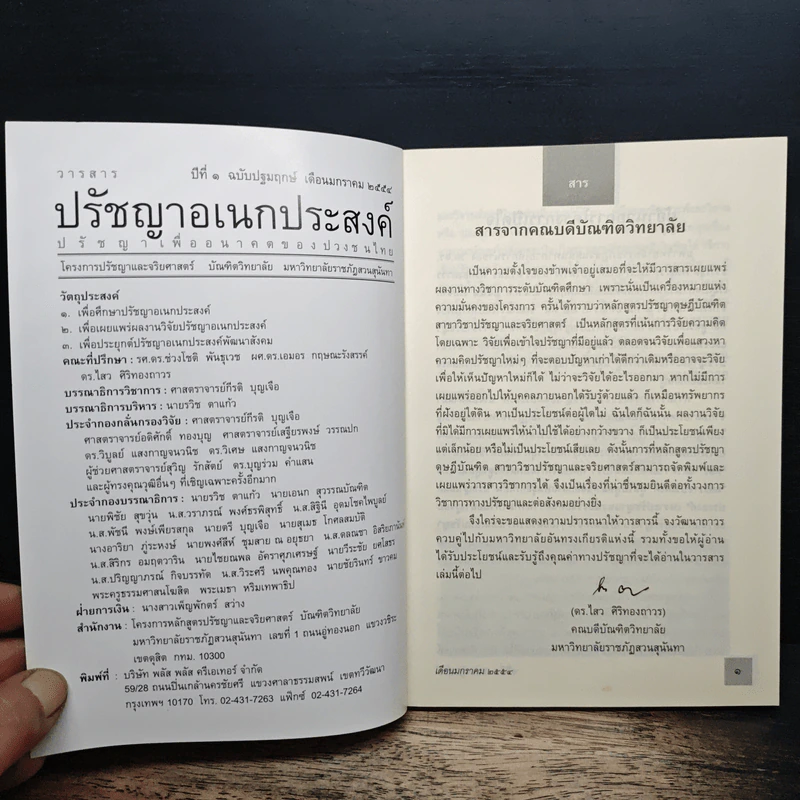 วารสาร ปีที่ ๑ ฉบับปฐมฤกษ์ เดือนมกราคม ๒๕๕๔
ปรัชญาอเนกประสงค์
ปรัชญาเพื่ออนาคตของปวงชนไทย
โครงการปรัชญาและจริยศาสตร์ บัณฑิตวิทยาลัย มหาวิทยาลัยราชภัฏสวนสุนันทา
วัตถุประสงค์
๑. เพื่อศึกษาปรัชญาอเนกประสงค์
๒. เพื่อเผยแพร่ผลงานวิจัยปรัชญาอเนกประสงค์
๓. เพื่อประยุกต์ปรัชญาอเนกประสงค์พัฒนาสังคม
คณะที่ปรึกษา : รศ.ดร.ช่วงโชติ พันธุเวช ผศ.ดร.เอมอร กฤษณะรังสรรค์
ดร.ไสว ศิริทองถาวร
บรรณาธิการวิชาการ : ศาสตราจารย์กีรติ บุญเจือ
บรรณาธิการบริหาร : นายรวิช ตาแก้ว
ประจำกองกลั่นกรองวิจัย : ศาสตราจารย์กีรติ บุญเจือ
ศาสตราจารย์อดิศักดิ์ ทองบุญ ศาสตราจารย์เสฐียรพงษ์ วรรณปก
ดร.วิบูลย์ แสงกาญจนวนิช ดร.วิเศษ แสงกาญจนวนิช
ผู้ช่วยศาสตราจารย์สุวิญ รักสัตย์ ดร.บุญร่วม คำแสน
และผู้ทรงคุณวุฒิอื่นๆ ที่เชิญเฉพาะครั้งอีกมาก
ประจำกองบรรณาธิการ : นายรวิช ตาแก้ว นายเอนก สุวรรณบัณฑิต
นายพิชัย สุขวุ่น น.ส.วราภรณ์ พงศ์ธรพิสุทธิ์ น.ส.สิฐินี อุดมโชคไพบูลย์
น.ส.พัชนี พงษ์เพียรสกุล นายตรี บุญเจือ นายสุเมธ โกศลสมบัติ
นางอาริยา ภู่ระหงษ์ นายพงศ์สีห์ ชุมสาย ณ อยุธยา น.ส.ดลณชา
น.ส.สิริกร อมฤตวาริน นายไชยณพล อัคราศุภเศรษฐ์ นายวีระชัย ยศโสธร
น.ส.ปริญญาภรณ์ กิจบรรทัด น.ส.วิระศรี นพคุณทอง นายชัยรินทร์ ขาวคม
พระครูธรรมศาสนโฆสิต พระเมธา หริมเทพาธิป
ฝ่ายการเงิน : นางสาวเพ็ญพักตร์ สว่าง
สำนักงาน : โครงการหลักสูตรปรัชญาและจริยศาสตร์ บัณฑิตวิทยาลัย
มหาวิทยาลัยราชภัฏสวนสุนันทา เลขที่ 1 ถนนอู่ทองนอก แขวงวชิระ
เขตดุสิต กทม. 10300
พิมพ์ที่ : บริษัท พลัส พลัส ครีเอเทอร์ จำกัด
59/28 ถนนปิ่นเกล้านครชัยศรี แขวงศาลาธรรมสพน์ เขตทวีวัฒนา
กรุงเทพฯ 10170 โทร. 02-431-7263 แฟ็กซ์ 02-431-7264
สาร
สารจากคณบดีบัณฑิตวิทยาลัย
เป็นความตั้งใจของข้าพเจ้าอยู่เสมอที่จะให้มีวารสารเผยแพร่
ผลงานทางวิชาการระดับบัณฑิตศึกษา เพราะนั่นเป็นเครื่องหมายแห่ง
ความมั่นคงของโครงการ ครั้นได้ทราบว่าหลักสูตรปรัชญาดุษฎีบัณฑิต
สาขาวิชาปรัชญาและจริยศาสตร์ เป็นหลักสูตรที่เน้นการวิจัยความคิด
โดยเฉพาะ วิจัยเพื่อเข้าใจปรัชญาที่มีอยู่แล้ว ตลอดจนวิจัยเพื่อแสวงหา
ความคิดปรัชญาใหม่ๆ ที่จะตอบปัญหาเก่าได้ดีกว่าเดิมหรืออาจจะวิจัย
เพื่อให้เห็นปัญหาใหม่ก็ได้ ไม่ว่าจะวิจัยได้อะไรออกมา หากไม่มีการ
เผยแพร่ออกไปให้บุคคลภายนอกได้รับรู้ด้วยแล้ว ก็เหมือนทรัพยากร
ที่ฝังอยู่ใต้ดิน หาเป็นประโยชน์ต่อผู้ใดไม่ ฉันใดก็ฉันนั้น ผลงานวิจัย
ที่มิได้มีการเผยแพร่ให้นำไปใช้ได้อย่างกว้างขวาง ก็เป็นประโยชน์เพียง
แต่เล็กน้อย หรือไม่เป็นประโยชน์เสียเลย ดังนั้นการที่หลักสูตรปรัชญา
ดุษฎีบัณฑิต สาขาวิชาปรัชญาและจริยศาสตร์สามารถจัดพิมพ์และ
เผยแพร่วารสารวิชาการได้ จึงเป็นเรื่องที่น่าชื่นชมยินดีต่อทั้งวงการ
วิชาการทางปรัชญาและต่อสังคมอย่างยิ่ง
จึงใคร่จะขอแสดงความปรารถนาให้วารสารนี้ จงวัฒนาถาวร
ควบคู่ไปกับมหาวิทยาลัยอันทรงเกียรติแห่งนี้ รวมทั้งขอให้ผู้อ่าน
ได้รับประโยชน์และรับรู้ถึงคุณค่าทางปรัชญาที่จะได้อ่านในวารสาร
เล่มนี้ต่อไป
(ดร.ไสว ศิริทองถาวร)
คณบดีบัณฑิตวิทยาลัย
มหาวิทยาลัยราชภัฏสวนสุนันทา
เดือนมกราคม ๒๕๕๔ ๑